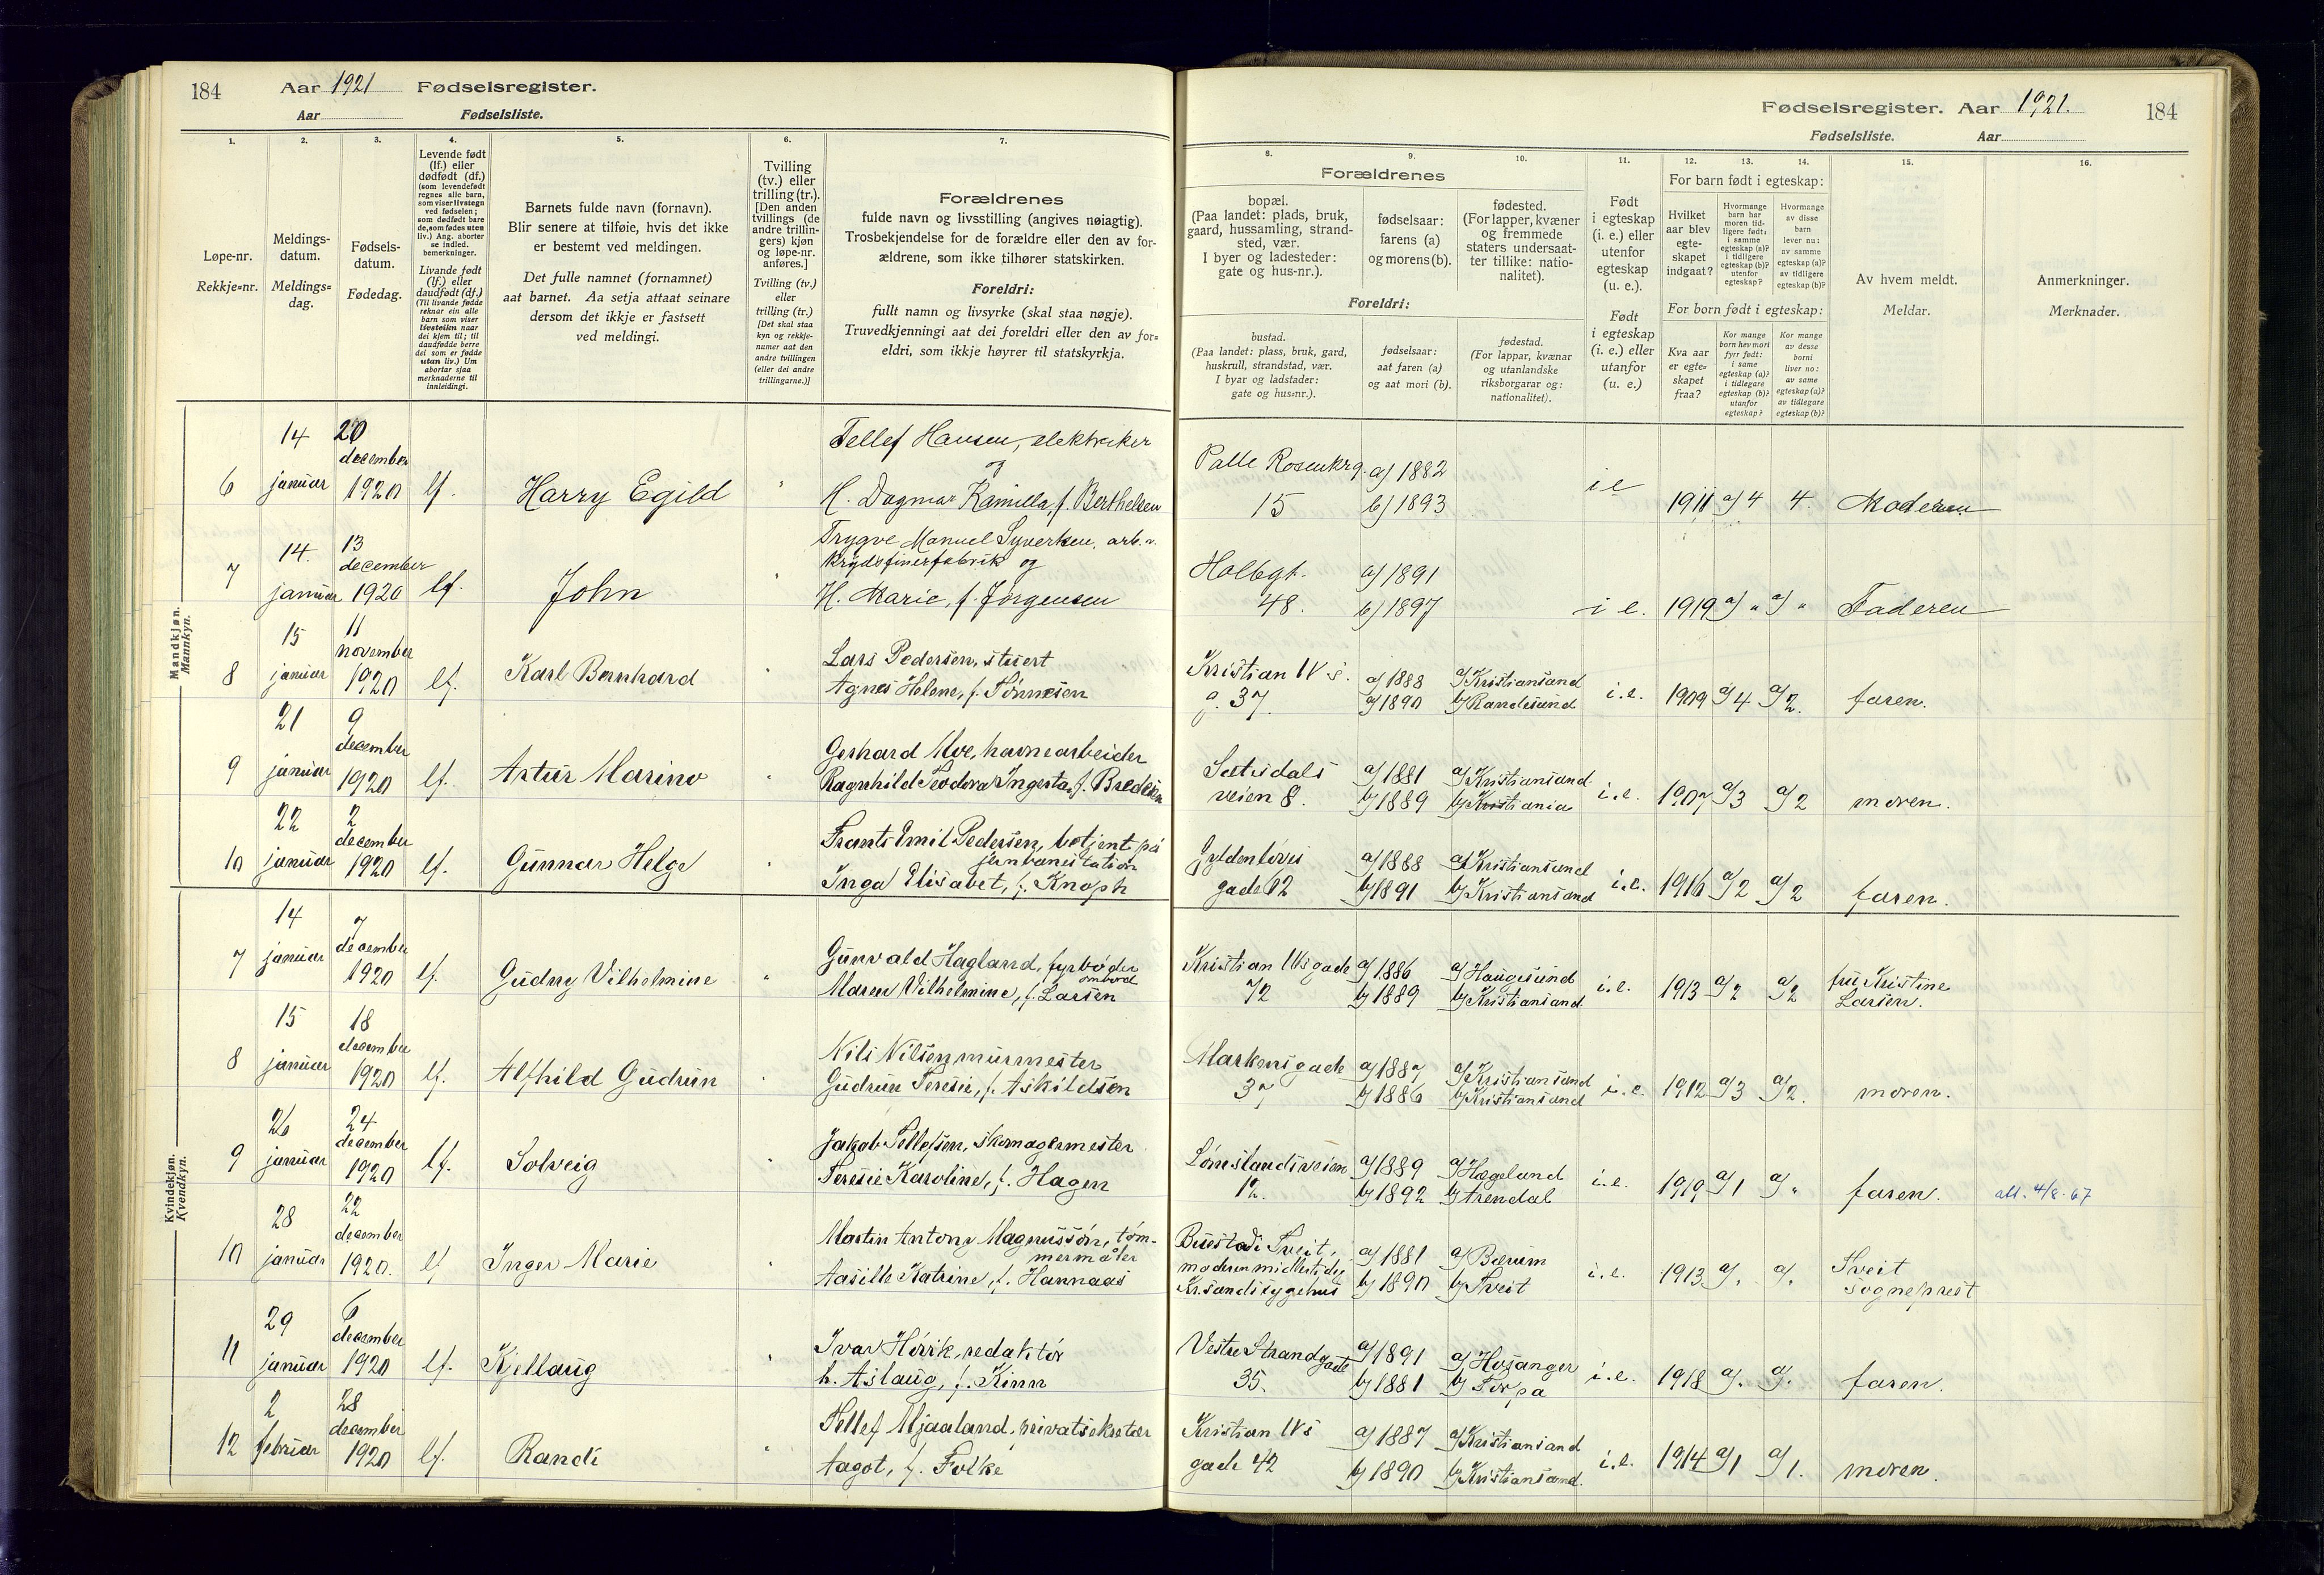 184 Aar 1921 Fødselsregister.
Aar Fødselsliste.
Fødselsregister. Aar 1921. 184
Fødselsliste. Aar
1. 2. 3. 4. 5. 6. 7.
Løpe-nr.
Rekkje=nr.
Meldings-
datum.
Meldings=
dag.
Fødsels-
datum.
Fødedag.
Levende født
(lf.) eller
dødfødt (df.)
(som levendefødt
regnes alle barn,
som viser livstegn
ved fødselen;
som dødfødt bare
de, som fødes uten
liv.) Ang. aborter
se indled.
bemerkninger.
Livande født
(lf.) eller
daudfødt (df.)
(Til livande fødde
reknar ein alle
barn som viser
livsteikn naar
dei kjem til; til
daudfødde berre
dei som er fødde
utan liv.) Um
abortar sjaa
merknaderne til
innleidingi.
Barnets fulde navn (fornavn).
Blir senere at tilføie, hvis det ikke
er bestemt ved meldingen.
Det fulle namnet (fornamnet)
aat barnet. Aa setja attaat seinare
dersom det ikkje er fastsett
ved meldingi.
Tvilling
(tv.) eller
trilling (tr.).
[Den anden
tvillings (de
andre trillin-
gers) kjøn
og løpe-nr.
anføres.]
Tvilling (tv.)
eller
trilling (tr.)
[Det skal staa
kyn og rekkje-
numer aat den
andre tvillingen
(eller dei andre
trillingarne.)]
Forældrenes
fulde navn og livsstilling (angives nøiagtig).
Trosbekjendelse for de forældre eller den av for-
ældrene, som ikke tilhører statskirken.
Foreldri:
fullt namn og livsyrke (skal staa nøgje).
Truvedkjenningi aat dei foreldri eller den av for=
eldri, som ikkje høyrer til statskyrkja.
8. 9. 10. 11. 12. 13. 14. 15. 16.
Forældrenes
bopæl.
(Paa landet: plads, bruk,
gaard, hussamling, strand-
sted, vær.
I byer og ladesteder:
gate og hus-nr.).
fødselsaar:
farens (a)
og morens (b).
fødested.
(For lapper, kvæner
og fremmede
staters undersaat-
ter tillike: natio-
nalitet).
Foreldri:
bustad.
(Paa landet: plass, bruk, gard,
huskrull, strandstad, vær.
I byar og ladstader:
gate og hus=nr.).
fødselsaar:
aat faren (a)
og aat mori (b).
fødestad.
(For lappar, kvænar
og utanlandske
riksborgarar og:
nationalitet).
Født
i egteskap
(i. e.) eller
utenfor
egteskap
(u. e.).
Født
i egteskap
(i. e.) eller
utanfor
(u. e.)
For barn født i egteskap:
Hvilket
aar blev
egte-
skapet
indgaat?
Hvormange
barn har
moren tid-
ligere født:
i samme
egteskap (a)?
i tidligere
egteskap (b)?
utenfor
egteskap?
Hvormange
av disse
barn
lever nu:
av samme
egteskap (a)?
av tidligere
egteskap (b)?
For born født i egteskap:
Kva aar
er egte=
skapet
fraa?
Kor mange
born hev mori
fyrr født:
i same
egteskap (a)?
i tidlegare
egteskap (b)?
utanfor
egteskap?
Kor mange
av desse
borni
liver no:
av same
egteskap (a)?
av tidlegare
egteskap (b)?
Av hvem meldt.
Meldar.
Anmerkninger.
Merknader.
Mandkjøn.
Mannkyn.
6 14 januar 20 december 1920 lf. Harry Egild " Tellef Hansen, elektriker
og
H. Dagmar Kamilla, f. Berthelsen
Palle Rosenkrg. 15 a) 1882 b) 1893 i e 1911 a) 4 4. Moderen
7 14. januar 13 december 1920 lf. John " Trygve Manuel Syvertsen, arb. v.
krydsfinerfabrik og
H. Marie, f. Jørgensen
Holbgt. 48. a) 1891 b) 1897 i e. 1919 a) " a) " Faderen
8 15 januar 11 november 1920 lf. Karl Bernhard " Lars Pedersen, stuert
Agnes Helene, f. Tønnesen
Kristian IV s. g. 37. a) 1888 b) 1890 a) Kristiansand b) Randesund i.e. 1909 a) 4 a) 2. faren.
9 21 januar 9 december 1920 lf. Artur Marino " Gerhard Moe, havnearbeider
Ragnhild Teodora Ingesta, f. Bredesen
Setesdals veien 8. a) 1881 b) 1889 a) Kristiansand b) Kristiania i.e. 1907 a) 3 a) 2 moren.
10 22 januar 2 december 1920 lf. Gunnar Helge " Frants Emil Pedersen, betjent på
jernbanestation
Inga Elisabet, f. Knoph
Gyldenløves gade 12 a) 1888 b) 1891 a) Kristiansand b) Kristiansand i.e. 1916 a) 2 a) 2 faren.
Kvindekjøn.
Kvendkyn.
7 14 januar 7 december 1920 lf. Gudny Vilhelmine " Gunvald Hagland, fyrbøder
ombord
Maren Vilhelmine, f. Larsen
Kristian IVs gade 72 a) 1886 b) 1889 a) Haugesund b) Kristiansand i.e. 1913 a) 2 a) 2 fru Kristine
Larsen.
8 15 januar 18 december 1920 lf. Alfhild Gudrun " Nils Nilsen murmester
Gudrun Teresie, f. Askildsen
Markensgade 37 a) 1887 b) 1886 a) Kristiansand b) Kristiansand i.e. 1912 a) 3 a) 2. moren.
9 26 januar 24 december 1920 lf. Solveig " Jakob Tellefsen, skomagermester
Teresie Karoline, f. Hagen
Lømslandsveien 12. a) 1889 b) 1892 a) Hægeland b) Arendal i.e. 1919 a) 1 a) " faren. att. 4/8.67
10 28 januar 22 december 1920. lf Inger Marie Martin Antony Magnussøn, tøm-
mermåler
Aasille Katrine, f. Hannaas
Buestad i Tveit,
moderen midlertidig
Kr.sands sygehus a) 1881 b) 1890 a) Bærum b) Tveit i.e. 1913 a) . a) . Tveit
sogneprest
11 29 januar 6 december 1920 lf. Kjellaug " Ivar Høvik, redaktør
h. Aslaug, f. Kinn
Vestre Strandgade 35. a) 1891 b) 1881 a) Hosanger b) Torpa i.e. 1918 a) . a) . faren.
12 2 februar 28 december 1920 lf. Randi " Tellef Mjaaland, privatsekretær
Aagot, f. Folke
Kristian IVs gade 42 a) 1887 b) 1890 a) Kristiansand b) Kristiansand. i.e. 1914 a) 1 a) 1. moren.